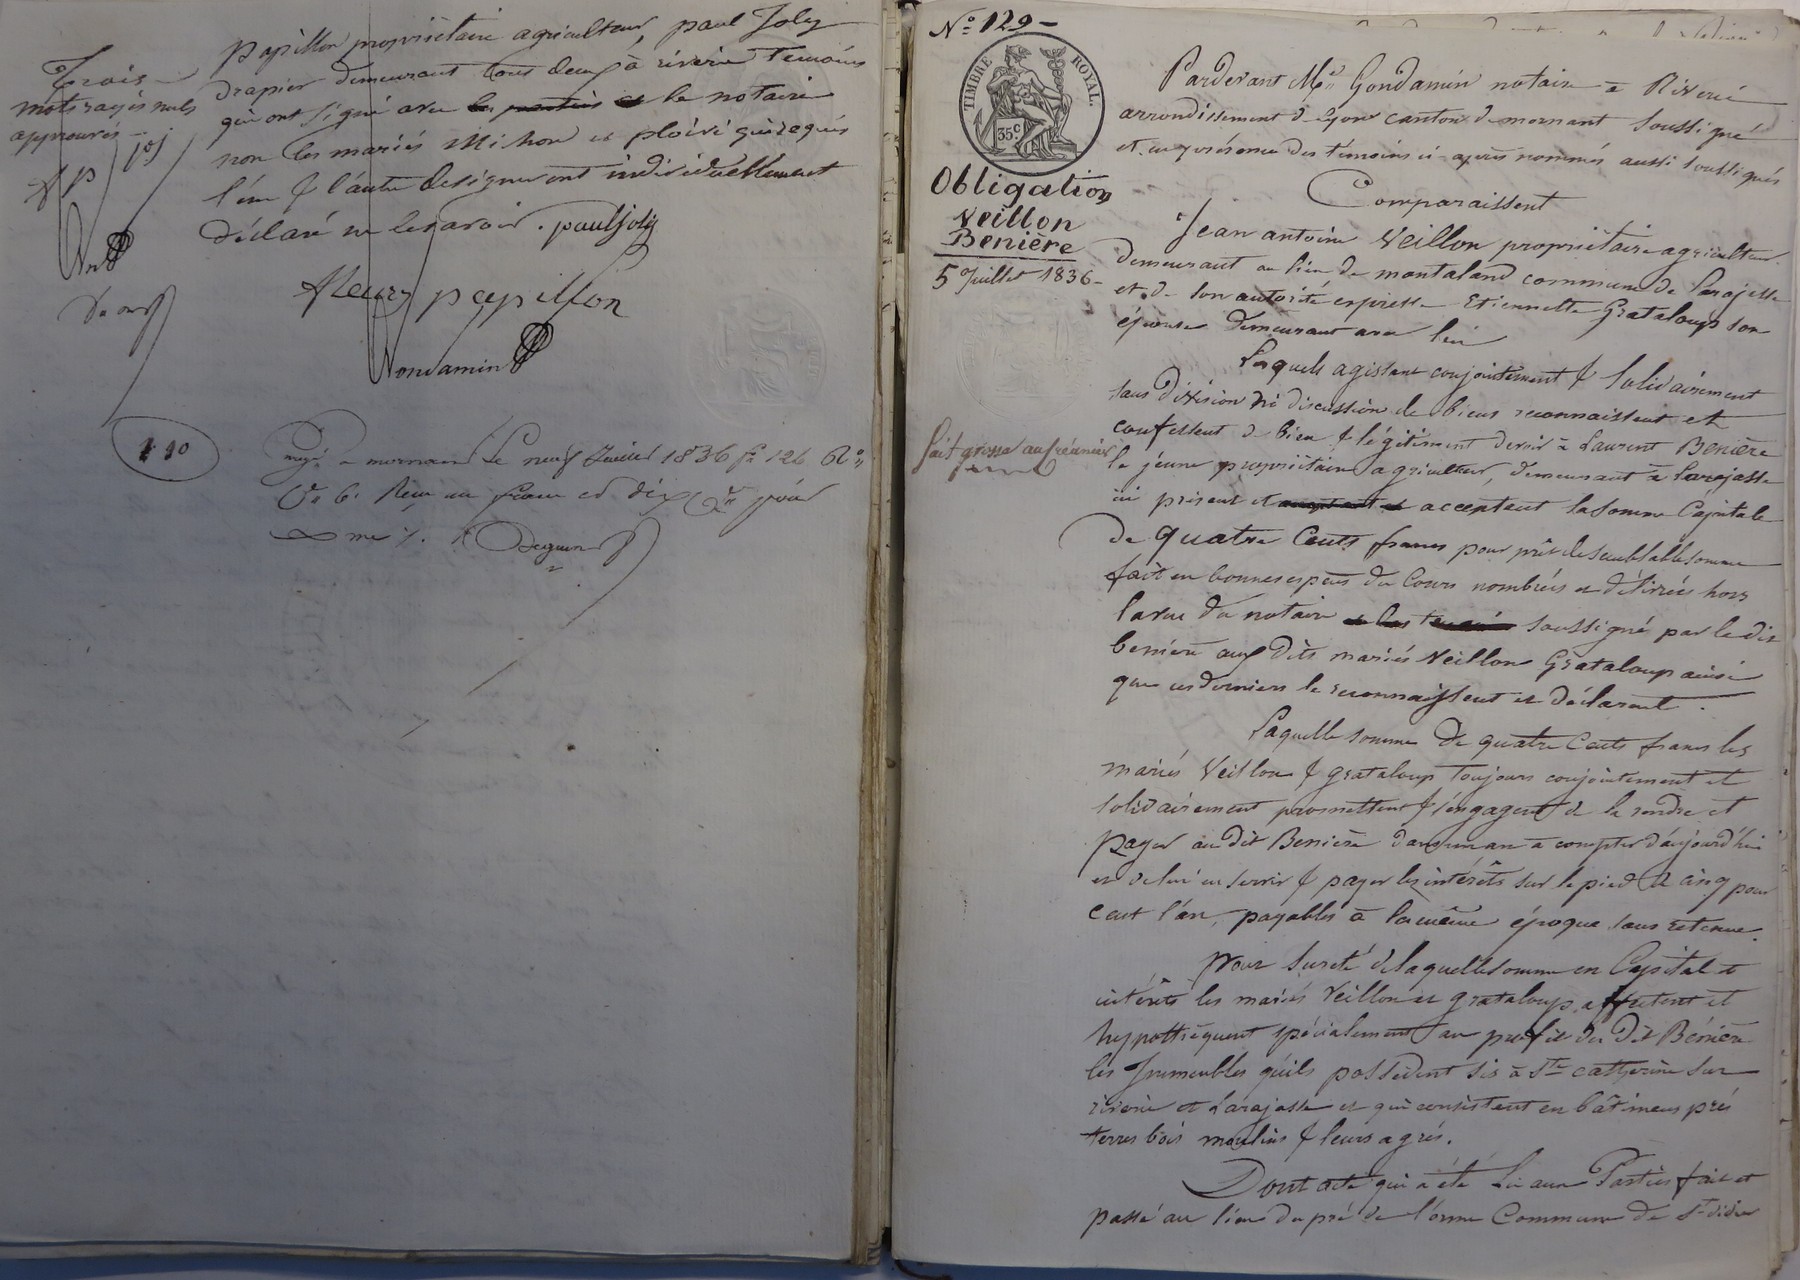 papillon propriétaire agriculteur, paul Joly
drapier demeurant tous deux à riverie temoins
qui ont signé avec les parties et le notaire
non les mariés Milhon et ploivi qui requis
l'un & l'autre de signer ont individuellement
déclaré ne le savoir. paul joly
fleury papillon
Condamin
Trois
mots rayés nuls
approuvés
fp pj
110
à mornant le neuf Juillet 1836 fo 126 Ro
Co 6. Reçu un franc et dix ces pour
Deguin
No 129
TIMBRE ROYAL.
35 c
Obligation
Veillon
Benière
5 Juillet 1836
fait grosse au créancier
Pardevant Me Condamin notaire à Riverie
arrondissement de Lyon canton de mornant soussigné
et en présence des témoins ci-après nommés aussi soussignés
Comparaissent
Jean antoine Veillon propriétaire agriculteur
demeurant au lieu de montaland commune de Larajasse
et de son autorité expresse Etiennette Grataloup son
épouse demeurant avec lui
Lesquels agissant conjointement & solidairement
sans division ni discussion de biens reconnaissent et
confessent de bien & légitiment devoir à Laurent Benière
le jeune propriétaire agriculteur, demeurant à Larajasse
ici présent et acceptant et acceptent la somme Capitale
De quatre Cents francs pour prêt de semblable somme
fait en bonnes espèces du Cours nombrées et délivrées hors
la vue du notaire et des temoins soussigné par le dit
benière aux dits mariés Veillon Grataloup ainsi
que ces derniers le reconnaissent et déclarent.
Laquelle somme de quatre Cents francs les
mariés Veillon & grataloup toujours conjointement et
solidairement promettent & s'engagent de la rendre et
payer au dit Benière dans un an à compter d'aujourd'hui
et de lui en servir & payer les intérêts sur le pied de cinq pour
cent l'an, payables à la même époque sans retenue.
Pour sureté de laquelle somme en Capital et
intérêts les mariés Veillon et grataloup affectent et
hypothèquent spécialement au profit du dit Bénière
les Immeubles qu'ils possèdent sis à Ste catherine sur
riverie et Larajasse et qui consistent en bâtimens prés
terres bois moulins & leurs agrés.
Dont acte qui a été lu aux Parties fait et
passé au lieu du pré de l'orme Commune de St didier